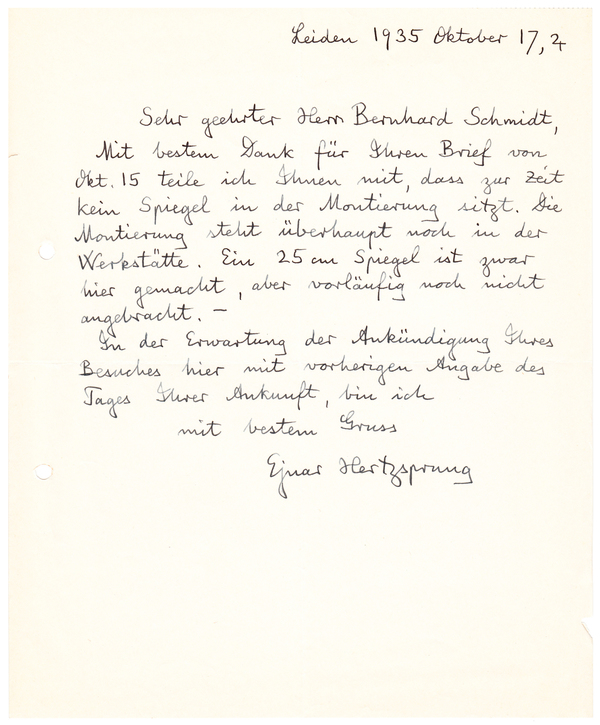 Leiden 1935 Oktober 17,4
Sehr geehrter Herr Bernhard Schmidt,
Mit bestem Dank für Ihren Brief von
Okt. 15 teile ich Ihnen mit, dass zur Zeit
kein Spiegel in der Montierung sitzt. Die
Montierung steht überhaupt noch in der
Werkstätte. Ein 25 cm Spiegel ist zwar
hier gemacht, aber vorläufig noch nicht
angebracht. —
In der Erwartung der Ankündigung Ihres
Besuches hier mit vorherigen Angabe des
Tages Ihrer Ankunft, bin ich
mit bestem Gruss
Ejnar Hertzsprung